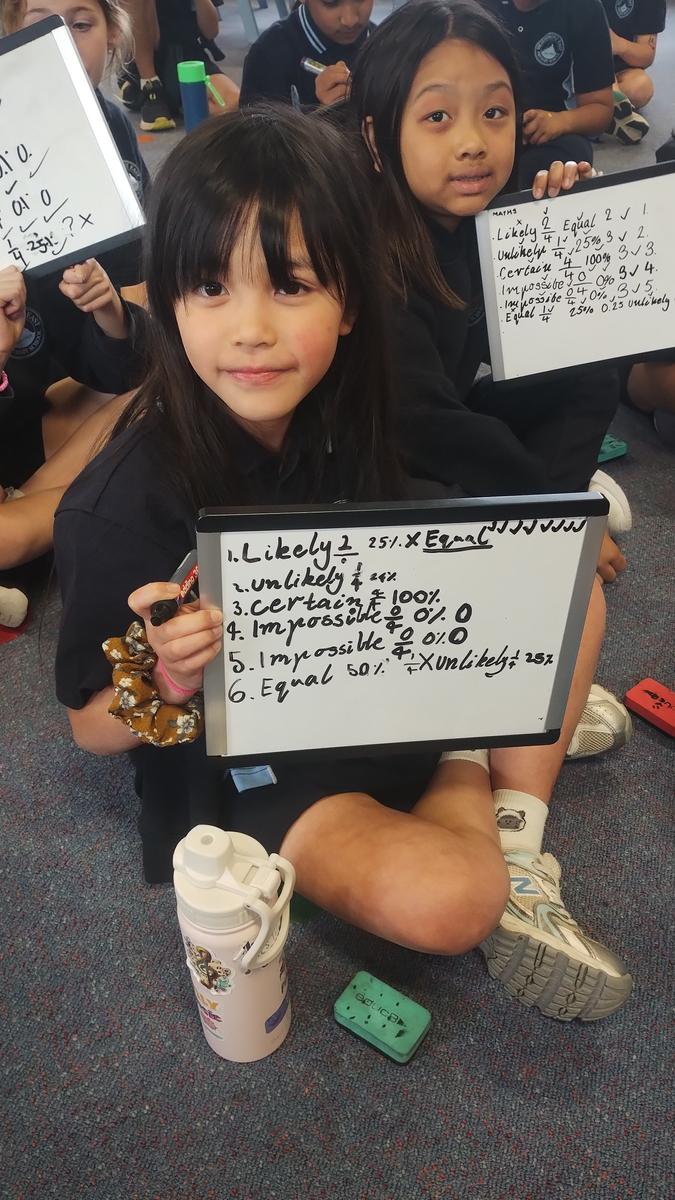 0,1 0.
0,1 0
1/4 25% ? x
MATHS
x
Likely 2/4 Equal 2 ✓ 1.
Unlikely 1/4 25% 3 ✓ 2.
Certain 4/4 100% 3 ✓ 3.
Impossible 0/4 0 0% 3 ✓ 4.
Impossible 0/4 0% 3 ✓ 5.
Equal 1/4 25% 0.25 unlikely
1. Likely 2/ 25% X Equal ✓✓✓✓✓✓✓
2. unlikely 1/4 25%
3. certain 4/4 100%
4. Impossible 0/4 0% 0
5. Impossible 0/4 0% 0
6. Equal 50% 1/4 X unlikely 1/4 25%
N
educa